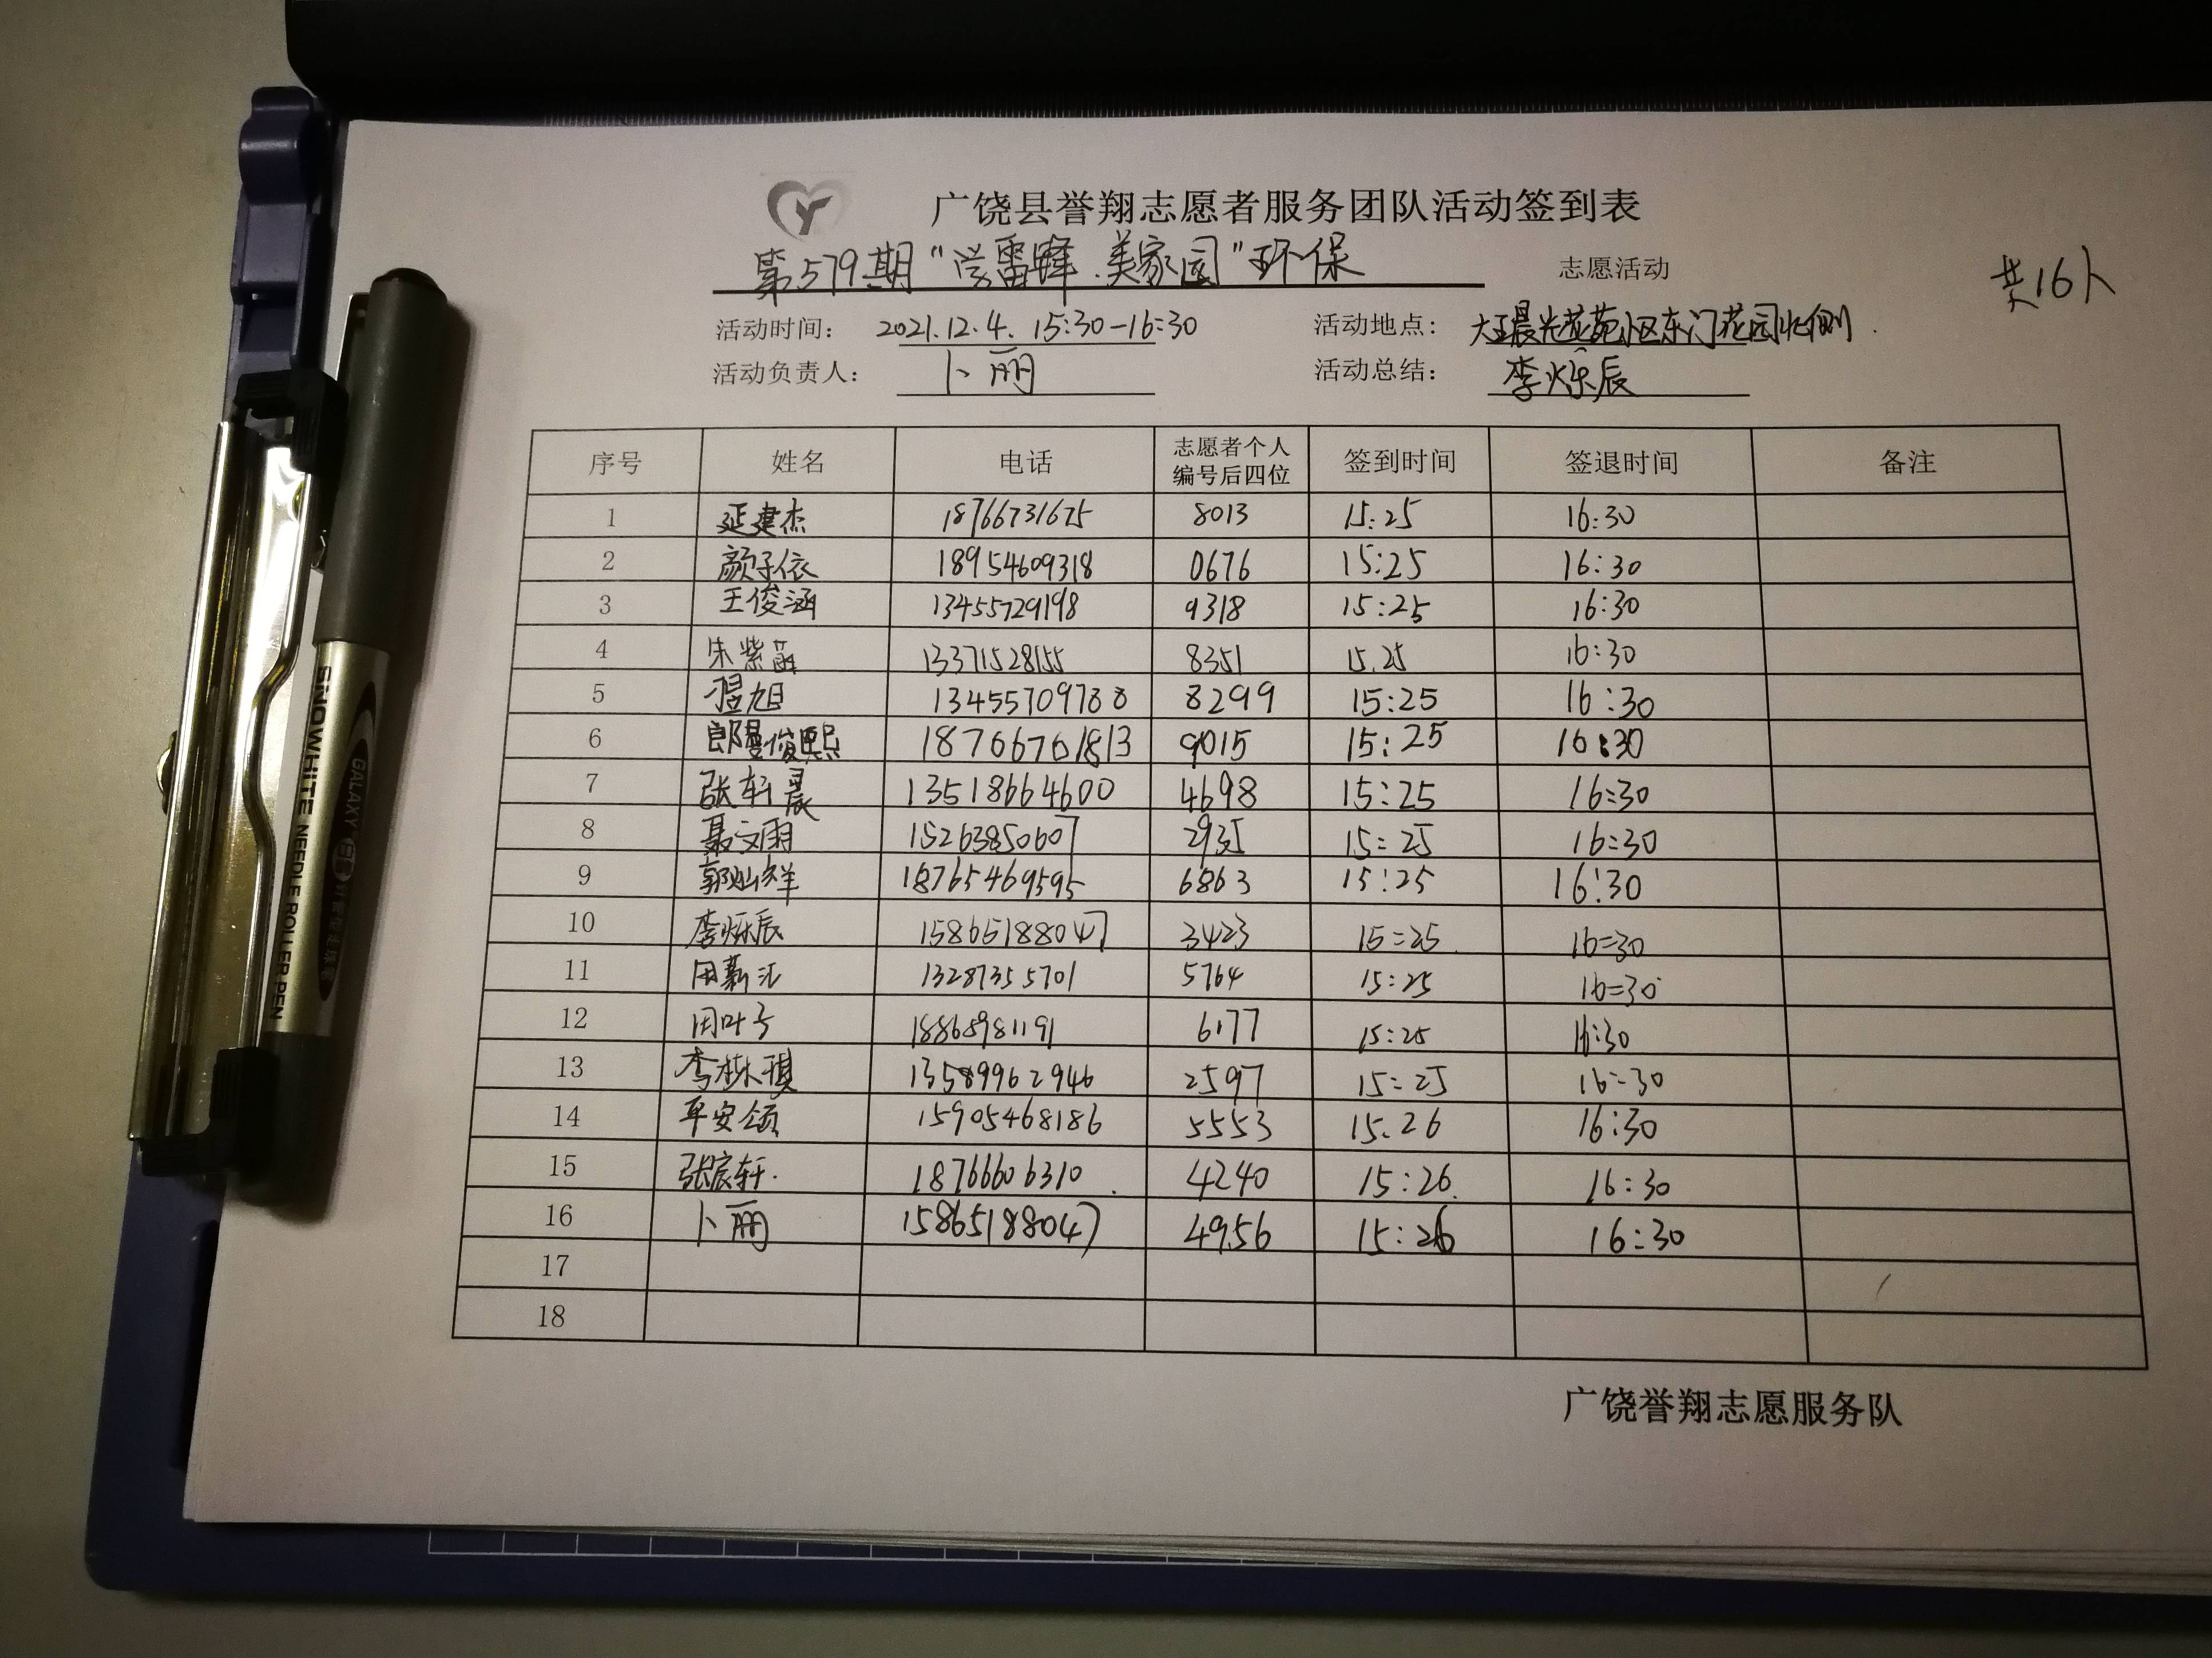 广饶县誉翔志愿者服务团队活动签到表
第579期"学雷锋.美家园"环保 志愿活动
共16人
活动时间: 2021.12.4. 15:30-16:30 活动地点: 大王晨光花苑小区东门花园北侧
活动负责人: 卜丽 活动总结: 李烁辰
序号 姓名 电话 志愿者个人编号后四位 签到时间 签退时间 备注
1 延建杰 18766731675 8013 15:25 16:30
2 颜子依 18954609318 0676 15:25 16:30
3 王俊涵 13455729198 9318 15:25 16:30
4 朱紫菡 13371528155 8351 15.25 16:30
5 旭 13455709788 8299 15:25 16:30
6 俊熙 18766761813 9015 15:25 16:30
7 张轩晨 13518664600 4698 15:25 16:30
8 聂文雨 15263850607 2935 15:25 16:30
9 郭灿祥 18765469595 6863 15:25 16:30
10 李烁辰 15865188047 3423 15:25 16:30
11 周薪汇 13287355701 5764 15:25 16:30
12 周叶子 18865981191 6177 15:25 16:30
13 李栋琪 13589962946 2597 15:25 16:30
14 平安颂 15905468186 5553 15:26 16:30
15 张宸轩. 18766606310 4240 15:26. 16:30
16 卜丽 15865188047 4956 15:26 16:30
17
18
广饶誉翔志愿服务队
SNOWHITE NEEDLE ROLLER PEN
GALAXY